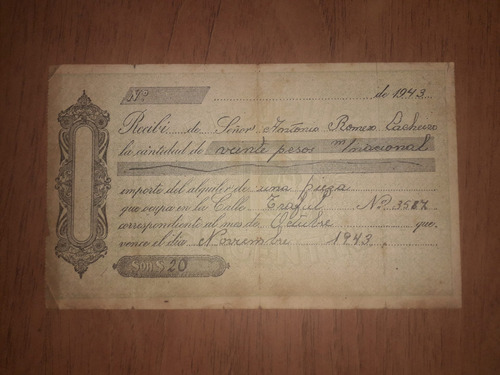 Nº de 1943
Recibí de Señor Antonio Romero Cacheiro
la cantidad de veinte pesos m/nacional
importe del alquiler de una pieza
que ocupa en la Calle Traful Nº 3587
correspondiente al mes de Octubre que
vence el día Noviembre 1943
Son $ 20